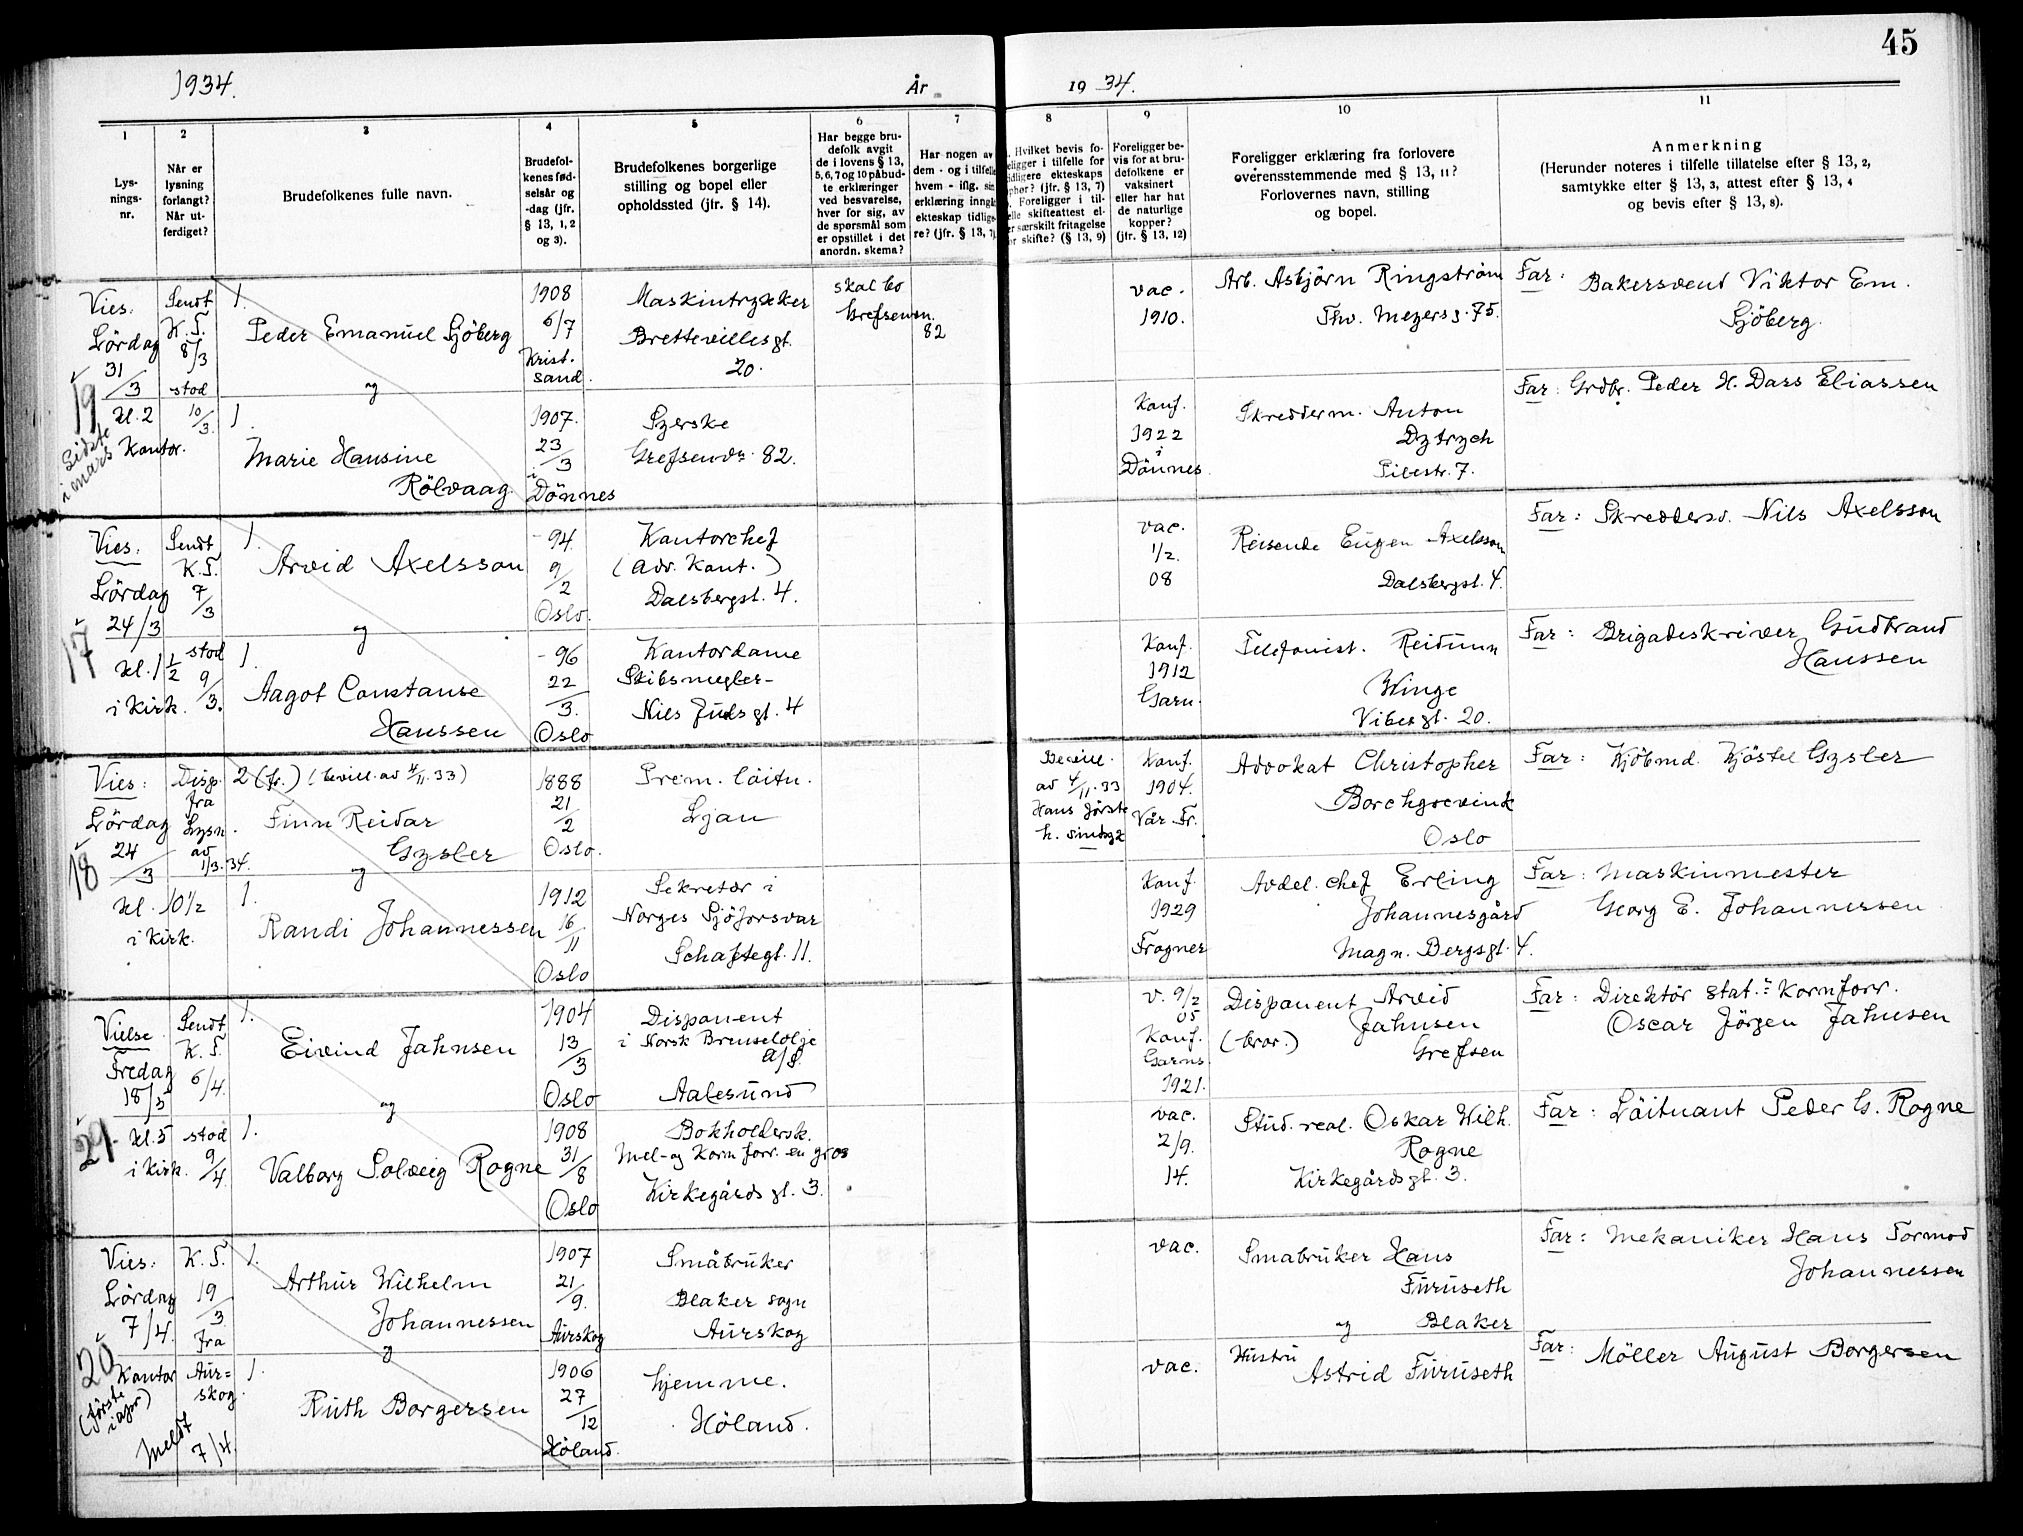 45
1934.
År
19 34.
1
2
3
4
5
6
7
8
9
10
11
Lys-
nings-
nr.
Når er
lysning
forlangt?
Når ut-
ferdiget?
Brudefolkenes fulle navn.
Brudefol-
kenes fød-
selsår og
-dag (jfr.
§ 13, 1, 2
og 3).
Brudefolkenes borgerlige
stilling og bopel eller
opholdssted (jfr. § 14).
Har begge bru-
defolk avgit
de i lovens § 13,
5, 6, 7 og 10 påbud-
te erklæringer
ved besvarelse,
hver for sig, av
de spørsmål som
er opstillet i det
anordn. skema?
Har nogen av
dem - og i tilfelle
hvem - iflg. sin
erklæring inngå
ekteskap tidlige-
re? (jfr. § 13, 7)
. Hvilket bevis fo-
religger i tilfelle for
tidligere ekteskaps
ophør? (jfr. § 13, 7)
. Foreligger i til-
felle skifteattest el-
er særskilt fritagelse
or skifte? (§ 13, 9)
Foreligger be-
vis for at bru-
defolkene er
vaksinert
eller har hat
de naturlige
kopper?
(jfr. § 13, 12)
Foreligger erklæring fra forlovere
overensstemmende med § 13, 11?
Forlovernes navn, stilling
og bopel.
Anmerkning
(Herunder noteres i tilfelle tillatelse efter § 13, 2,
samtykke efter § 13, 3, attest efter § 13, 4
og bevis efter § 13, 8).
Vies:
Lördag
31/3
19
kl. 2
Kontor.
Sidste
i mars
Sendt
K. T.
8/3
stod
10/3.
1.
Peder Emanuel Sjöberg
og
1.
Marie Hansine
Rölvaag
1908
6/7
Krist.
sand.
1907.
23/3
i
Dönnes
Maskintrykker
Brettevillesgt.
20.
Syerske
Grefsenvn. 82.
skal bo
Grefsenvn.
82
vac.
1910.
Konf.
1922
i
Dönnes
Arb. Asbjörn Ringström
Thv. Meyersg. 75.
Skredderm. Anton
Dytrych
Pilestr. 7.
Far: Bakersvend Viktor Em.
Sjöberg.
Far: Grdbr. Peder H. Dass Eliassen
Vies:
Lördag
24/3
17
kl. 1 1/2
i kirk.
Sendt
K. T.
7/3
stod
9/3.
1.
Arvid Axelsson
og
1.
Aagot Constanse
Hanssen
- 94.
9/2
Oslo.
- 96
22/3.
Oslo
Kontorchef
(Adv. Kont.)
Dalsbergst. 4.
Kontordame
Skibsmegler-
Niels Juelsgt. 4
vac.
1/2.
08
Konf.
1912
Garn.
Reisende Eugen Axelsson
Dalsbergst. 4.
Telefonist. Reidunn
Winge
Vibesgt. 20.
Far: Skredders. Nils Axelsson
Far: Brigadeskriver Gudbrand
Hanssen
Vies:
Lördag
24/3
18
kl. 10 1/2
i kirk.
Disp.
fra
Lysn.
av
1/3.34.
2 (fr.) (bevill. av 4/11.33)
Finn Reidar
Gysler
og
1.
Randi Johannessen
1888
21/2
Oslo.
1912
16/11
Oslo
Prem. löitn.
Ljan
Sekretær i
Norges Sjöforsvar
Schaftegt. 11.
Bevill.
av 4/11.33
Hans förste
h.
Konf.
1904.
Vår Fr.
Konf.
1929
Frogner
Advokat Christopher
Borchgrevink
Oslo
Avdel. chef Erling
Johannesgård
Magn. Bergsgt. 4.
Far: Kjöbmd. Kjöstel Gysler
Far: Maskinmester
Georg E. Johannessen
Vielse
Fredag
18/5
29.
kl. 5
i kirk.
Sendt
K. T.
6/4.
stod
9/4.
1.
Eivind Jahnsen
og
1.
Valborg Solveig Rogne
1904
13/3
Oslo
1908
31/8
Oslo
Disponent
i Norsk Brenselolje
A/S.
Aalesund
Bokholdersk.
Mel- og Korn forr. en gros
Kirkegårdsgt. 3.
v. 9/2
05
Konf.
Garns.
1921.
vac.
2/9.
14.
Disponent Arvid
(-bror.) Jahnsen
Grefsen
Stud. real. Oskar Wilh.
Rogne
Kirkegårdsgt. 3.
Far: Direktör Stat.s Kornforr.
Oscar Jörgen Jahnsen
Far: Löitnant Peder G. Rogne
Vies:
Lördag
7/4.
20
Kontor
(förste
i apr)
K. T.
19/3
fra
Aur=
skog.
Meldt
7/4.
1.
Arthur Wilhelm
Johannessen
og
1.
Ruth Borgersen
1907
21/9.
Aurskog
1906
27/12
Höland.
Småbruker
Blaker sogn
Aurskog
hjemme.
Höland.
vac.
vac.
Småbruker Hans
Furuseth
og Blaker
Hustru
Astrid Furuseth
Far: Mekaniker Hans Tormod
Johannessen
Far: Möller August Borgersen